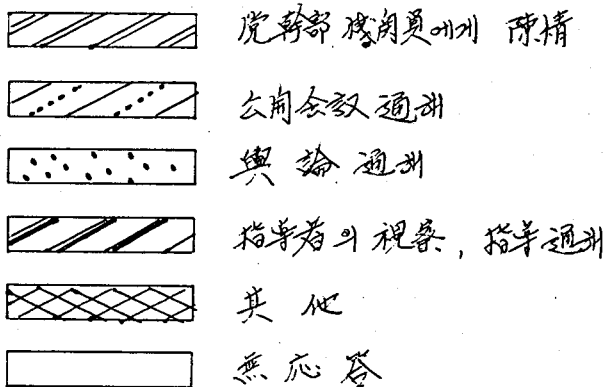 党幹部 機関員에게 陳情
公開会議 通해
輿論 通해
指导者의 視察, 指导 通해
其他
無応答